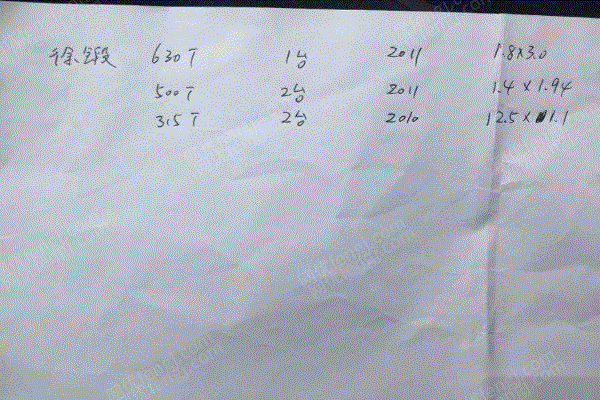 徐锻 630T 1台 2011 1.8×3.0
500T 2台 2011 1.4×1.94
315T 2台 2010 12.5×1.1